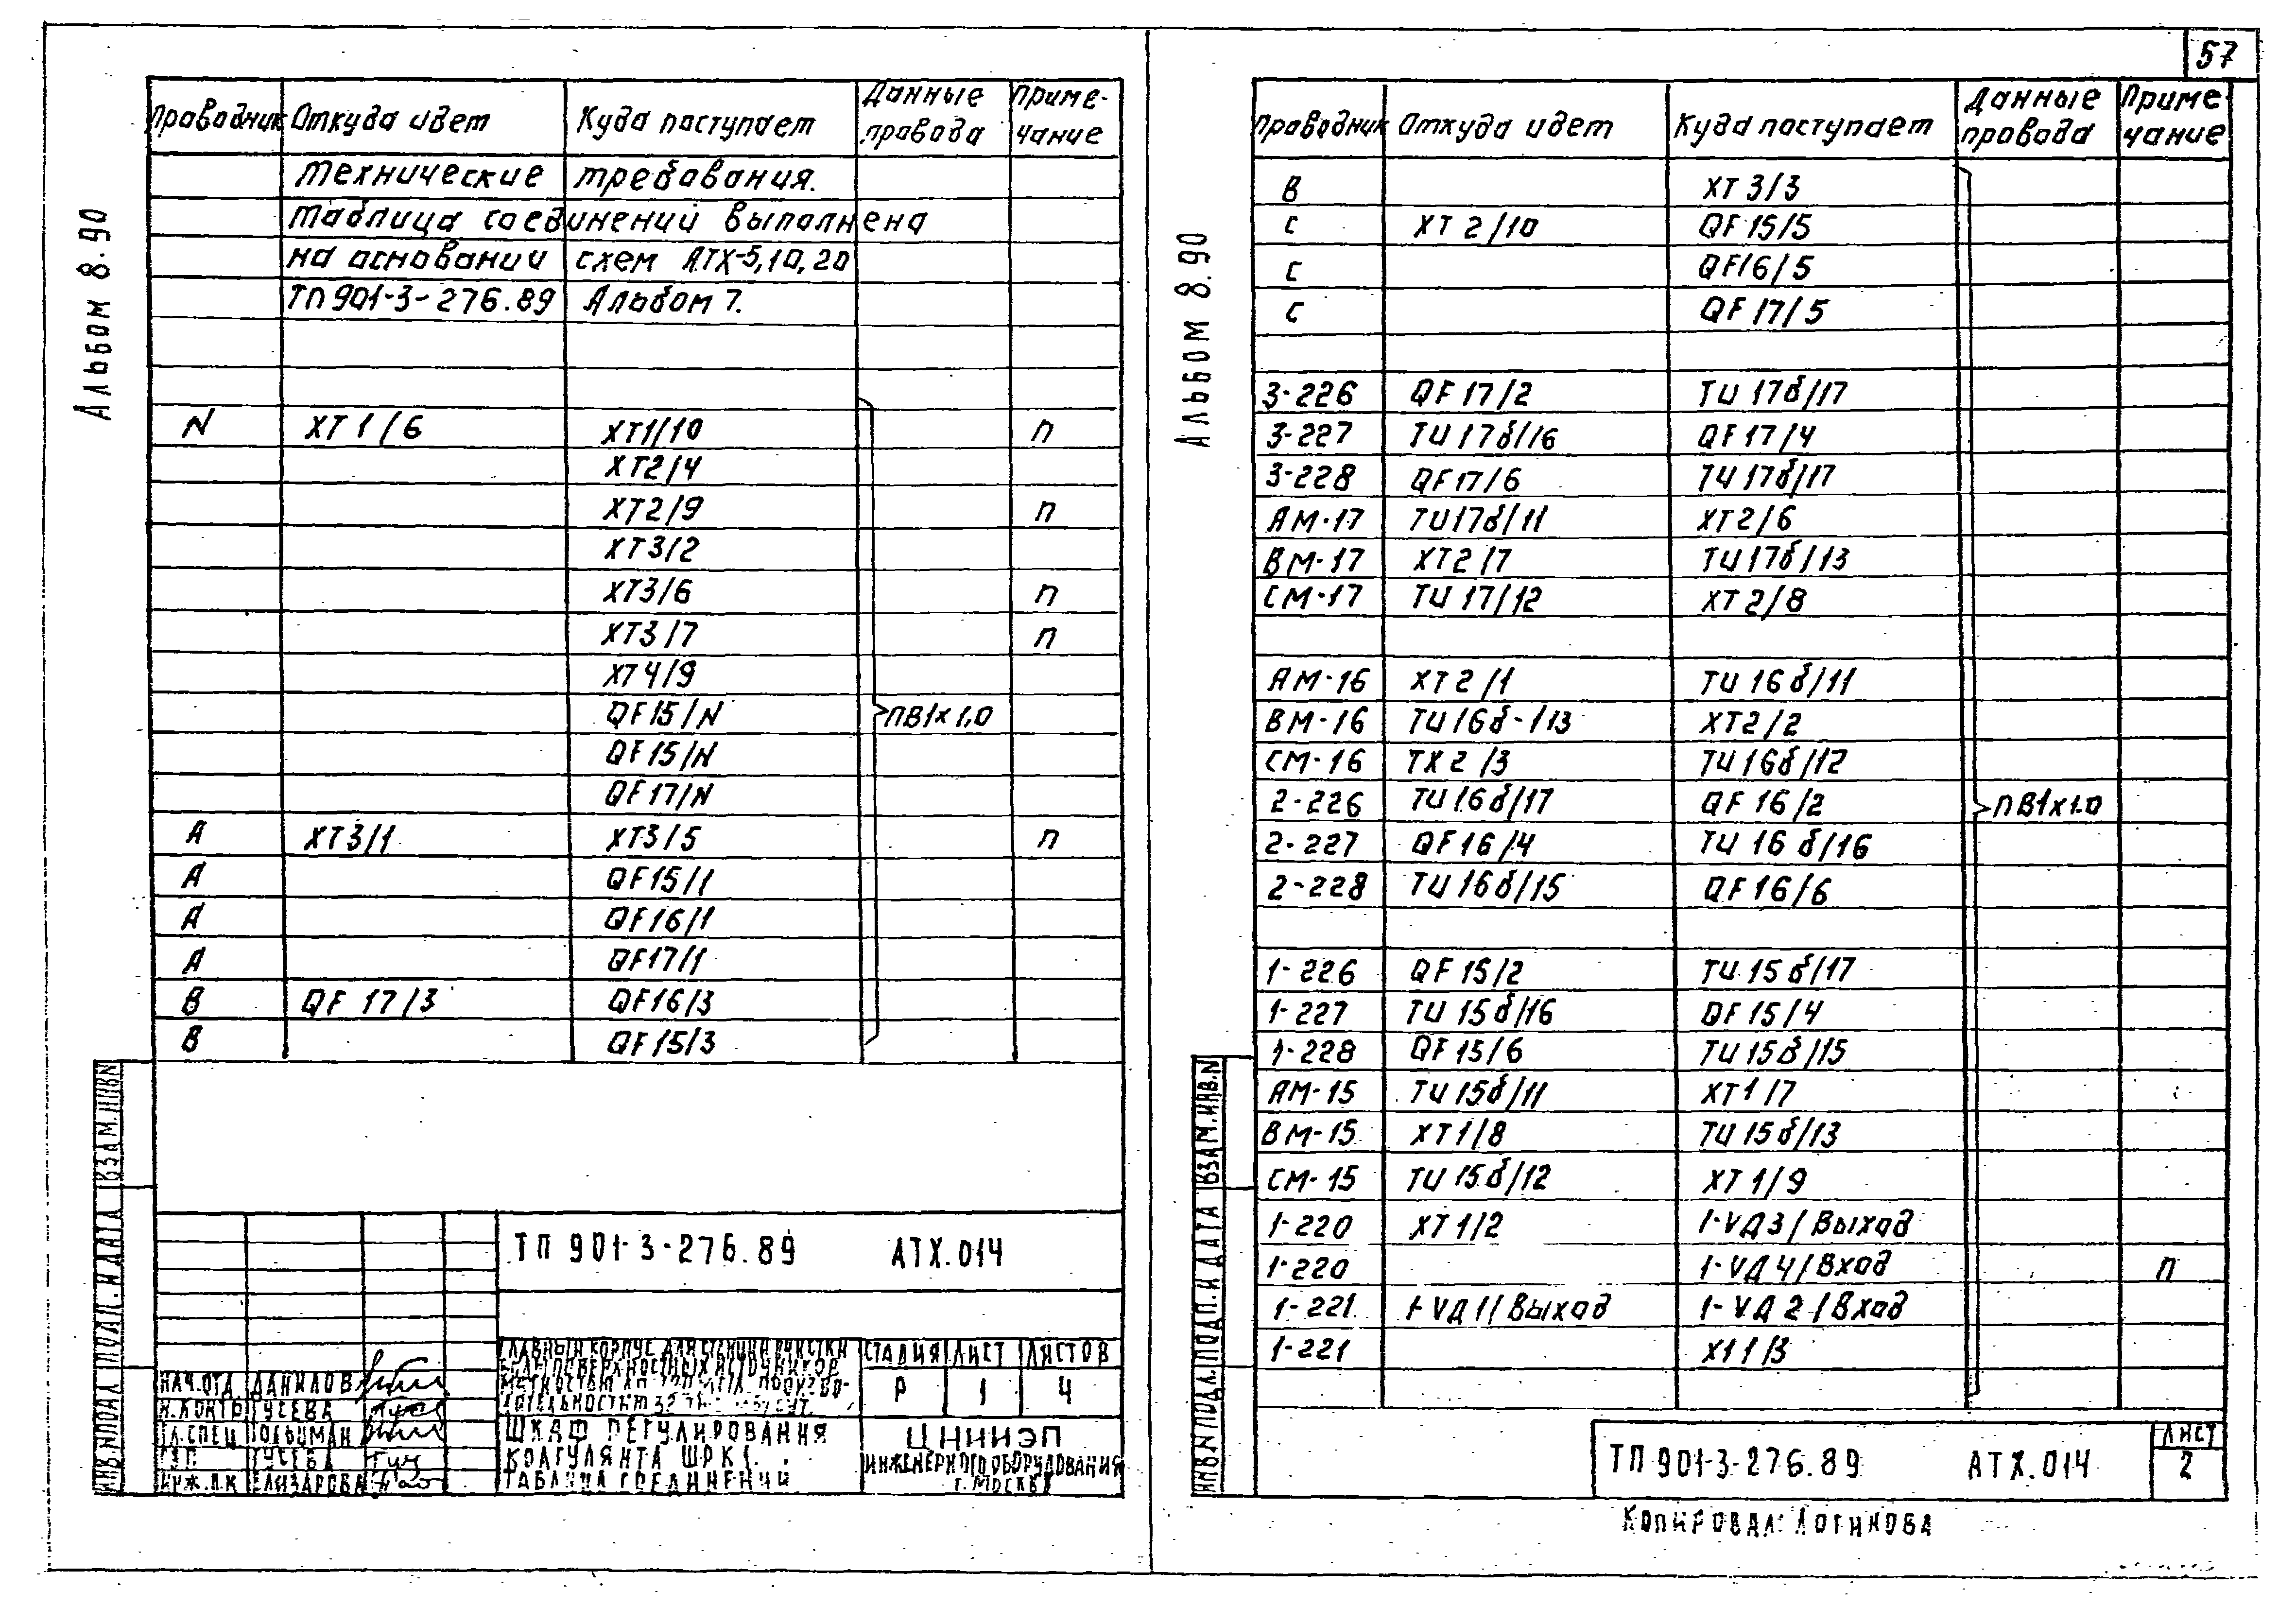 57
Альбом 8.90
Проводник Откуда идет Куда поступает Данные провода Примечание
Технические требования.
Таблица соединений выполнена
на основании схем АТХ-5,10,20
ТП 901-3-276.89 Альбом 7.
N XT1/6 XT1/10 П
XT2/4
XT2/9 П
XT3/2
XT3/6 П
XT3/7 П
XT4/9
QF15/N ПВ1х1,0
QF15/N
QF17/N
A XT3/1 XT3/5 П
A QF15/1
A QF16/1
A QF17/1
B QF 17/3 QF16/3
B QF15/3
ВЗАМ.ИНВ.N
ПОДП. И ДАТА
ИНВ.N ПОДЛ
ТП 901-3-276.89 АТХ.014
ГЛАВНЫЙ КОРПУС ДЛЯ СТАНЦИИ ОЧИСТКИ
ВОДЫ ПОВЕРХНОСТНЫХ ИСТОЧНИКОВ
СТАДИЯ ЛИСТ ЛИСТОВ
Р 1 4
НАЧ.ОТД. ДАНИЛОВ
Н.КОНТР ГУСЕВА
ГЛ.СПЕЦ
ГУСЕВА
ИНЖ. ЕЛИЗАРОВА
ШКАФ РЕГУЛИРОВАНИЯ
КОАГУЛЯНТА ШРК1.
ТАБЛИЦА СОЕДИНЕНИЙ
ЦНИИЭП
ИНЖЕНЕРНОГО ОБОРУДОВАНИЯ
г. МОСКВА
Альбом 8.90
Проводник Откуда идет Куда поступает Данные провода Примечание
B XT 3/3
C XT 2/10 QF 15/5
C QF16/5
C QF 17/5
3-226 QF 17/2 ТИ 17б/17
3-227 ТИ 17б/16 QF 17/4
3-228 QF17/6 ТИ 17б/17
АМ-17 ТИ17б/11 XT2/6
ВМ-17 XT2/7 ТИ17б/13
СМ-17 ТИ 17/12 XT 2/8
АМ-16 XT 2/1 ТИ 16б/11
ВМ-16 ТИ 16б-113 XT2/2
СМ-16 ТХ 2/3 ТИ 16б/12
2-226 ТИ 16б/17 QF 16/2 ПВ1х1.0
2-227 QF 16/4 ТИ 16б/16
2-228 ТИ 16б/15 QF 16/6
1-226 QF 15/2 ТИ 15б/17
1-227 ТИ 15б/16 QF 15/4
1-228 QF 15/6 ТИ 15б/15
АМ-15 ТИ 15б/11 XT1/7
ВМ-15 XT1/8 ТИ 15б/13
СМ-15 ТИ 15б/12 XT 1/9
1-220 XT 1/2 1-VД3/Выход
1-220 1-VД4/Вход П
1-221 1-VД1/Выход 1-VД2/Вход
1-221 X11/3
ВЗАМ.ИНВ.N
ПОДП. И ДАТА
ИНВ.N ПОДЛ.
ТП 901-3-276.89 АТХ.014
ЛИСТ
2
Копировал: Логинова